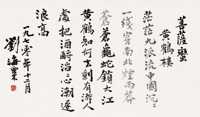 菩薩蠻
黃鶴樓
茫茫九派流中國沉
一綫穿南北煙雨莽
蒼蒼龜蛇鎖大江
黃鶴知何去剩有游人
處把酒酹滔滔心潮逐
浪高
一九七〇年十二月
劉海粟